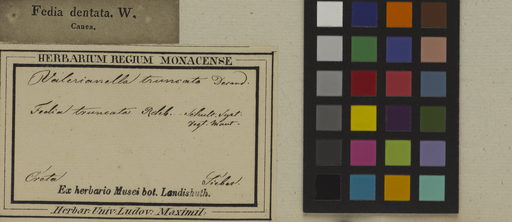 Fedia dentata. W.
Canea.
HERBARIUM REGIUM MONACENSE
Valerianella truncata Decand.
Fedia truncata Rchb. Schult. Syst.
Veg. Mant.
Creta Sieber.
Ex herbario Musei bot. Landishuth.
Herbar. Univ. Ludov. Maximil.